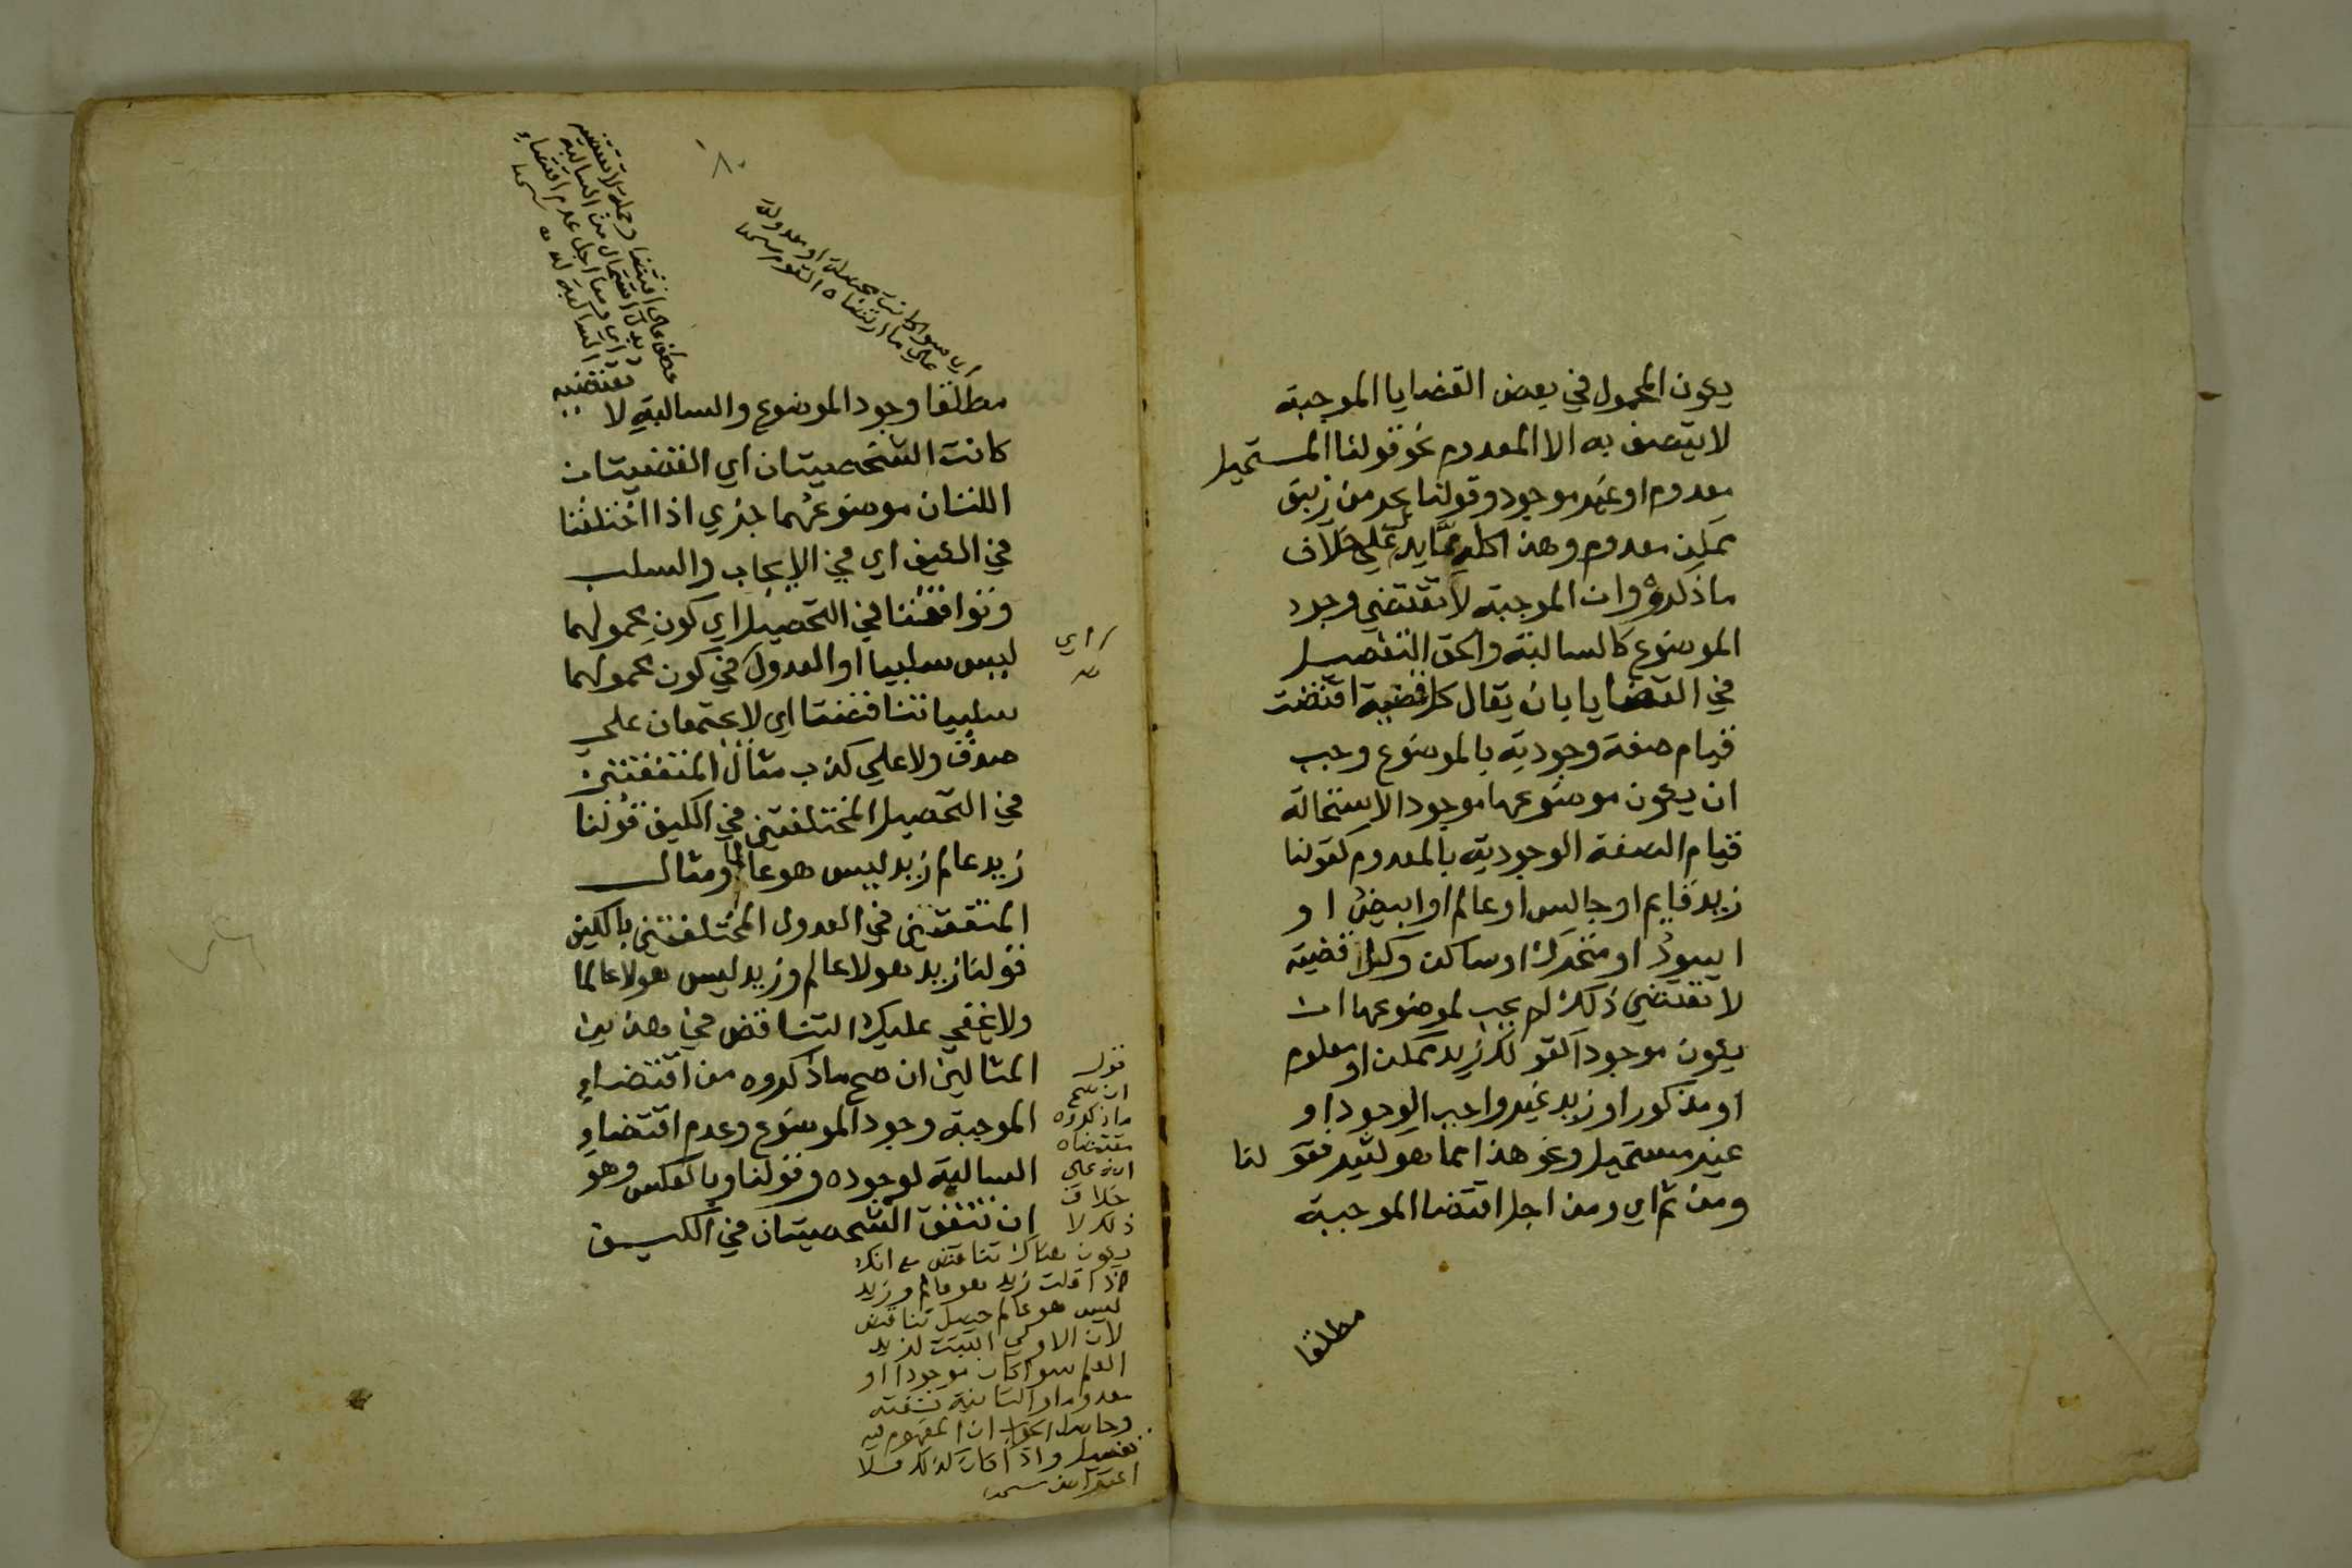 يكون المحمول في بعض القضايا الموجبة
لا يتصف به الا المعدوم نحو قولنا المستحيل
معدوم او غير موجود وقولنا بحر من زيبق
ممكن معدوم وهذا كله مما يدل على خلاف
ما ذكروه وان الموجبة لا تقتضي وجود
الموضوع كالسالبة والحق التفصيل
في القضايا بان يقال كل قضية اقتضت
قيام صفة وجودية بالموضوع وجب
ان يكون موضوعها موجودا لاستحالة
قيام الصفة الوجودية بالمعدوم كقولنا
زيد قايم او جالس او عالم او ابيض او
اسود او متحرك او ساكن وكل قضية
لا تقتضي ذلك لم يجب لموضوعها ان
يكون موجودا كقولك زيد ممكن او معلوم
او مذكور او زيد غير واجب الوجود او
غير مستحيل ونحو هذا مما هو كثير فقولنا
ومن ثم اي ومن اجل اقتضا الموجبة
مطلقا
٨
اي سوا كانت محصلة او معدولة
على ما ارتضاه القوم
عطف على اقتضا وجملة لا تقتضيه
بدل اشتمال من السالبة
اي ومن اجل عدم اقتضاء
السالبة له
مطلقا وجود الموضوع والسالبة لا تقتضيه
كانت الشخصيتان اي القضيتان
اللتان موضوعهما جزي اذا اختلفتا
في الكيف اي في الايجاب والسلب
وتوافقتا في التحصيل اي كون محمولهما
ليس سلبيا او العدول في كون محمولهما
اي
سلبيا تناقضتا اي لا يجتمعان على
صدق ولا على كذب مثال المتفقتين
في التحصيل المختلفتين في الكيف قولنا
زيد عالم زيد ليس هو عالما ومثال
المتفقتين في العدول المختلفتين بالكيف
قولنا زيد هو لا عالم وزيد ليس هو لا عالما
ولا يخفى عليك التناقض في هذين
المثالين ان صح ما ذكروه من اقتضاء
الموجبة وجود الموضوع وعدم اقتضاء
السالبة لوجوده وقولنا وبالعكس وهو
ان تتفق الشخصيتان في الكيف
قوله
ان صح
ما ذكروه
مقتضاه
انه على
خلاف
ذلك لا
يكون هناك تناقض مع انك
اذا قلت زيد هو عالم وزيد
ليس هو عالم حصل تناقض
لان الاولى اثبتت لزيد
العلم سوا كان موجودا او
معدوما والثانية نفته
وحاصل الجواب ان المفهوم فيه
تفصيل واذا كان كذلك فلا
اعتراض